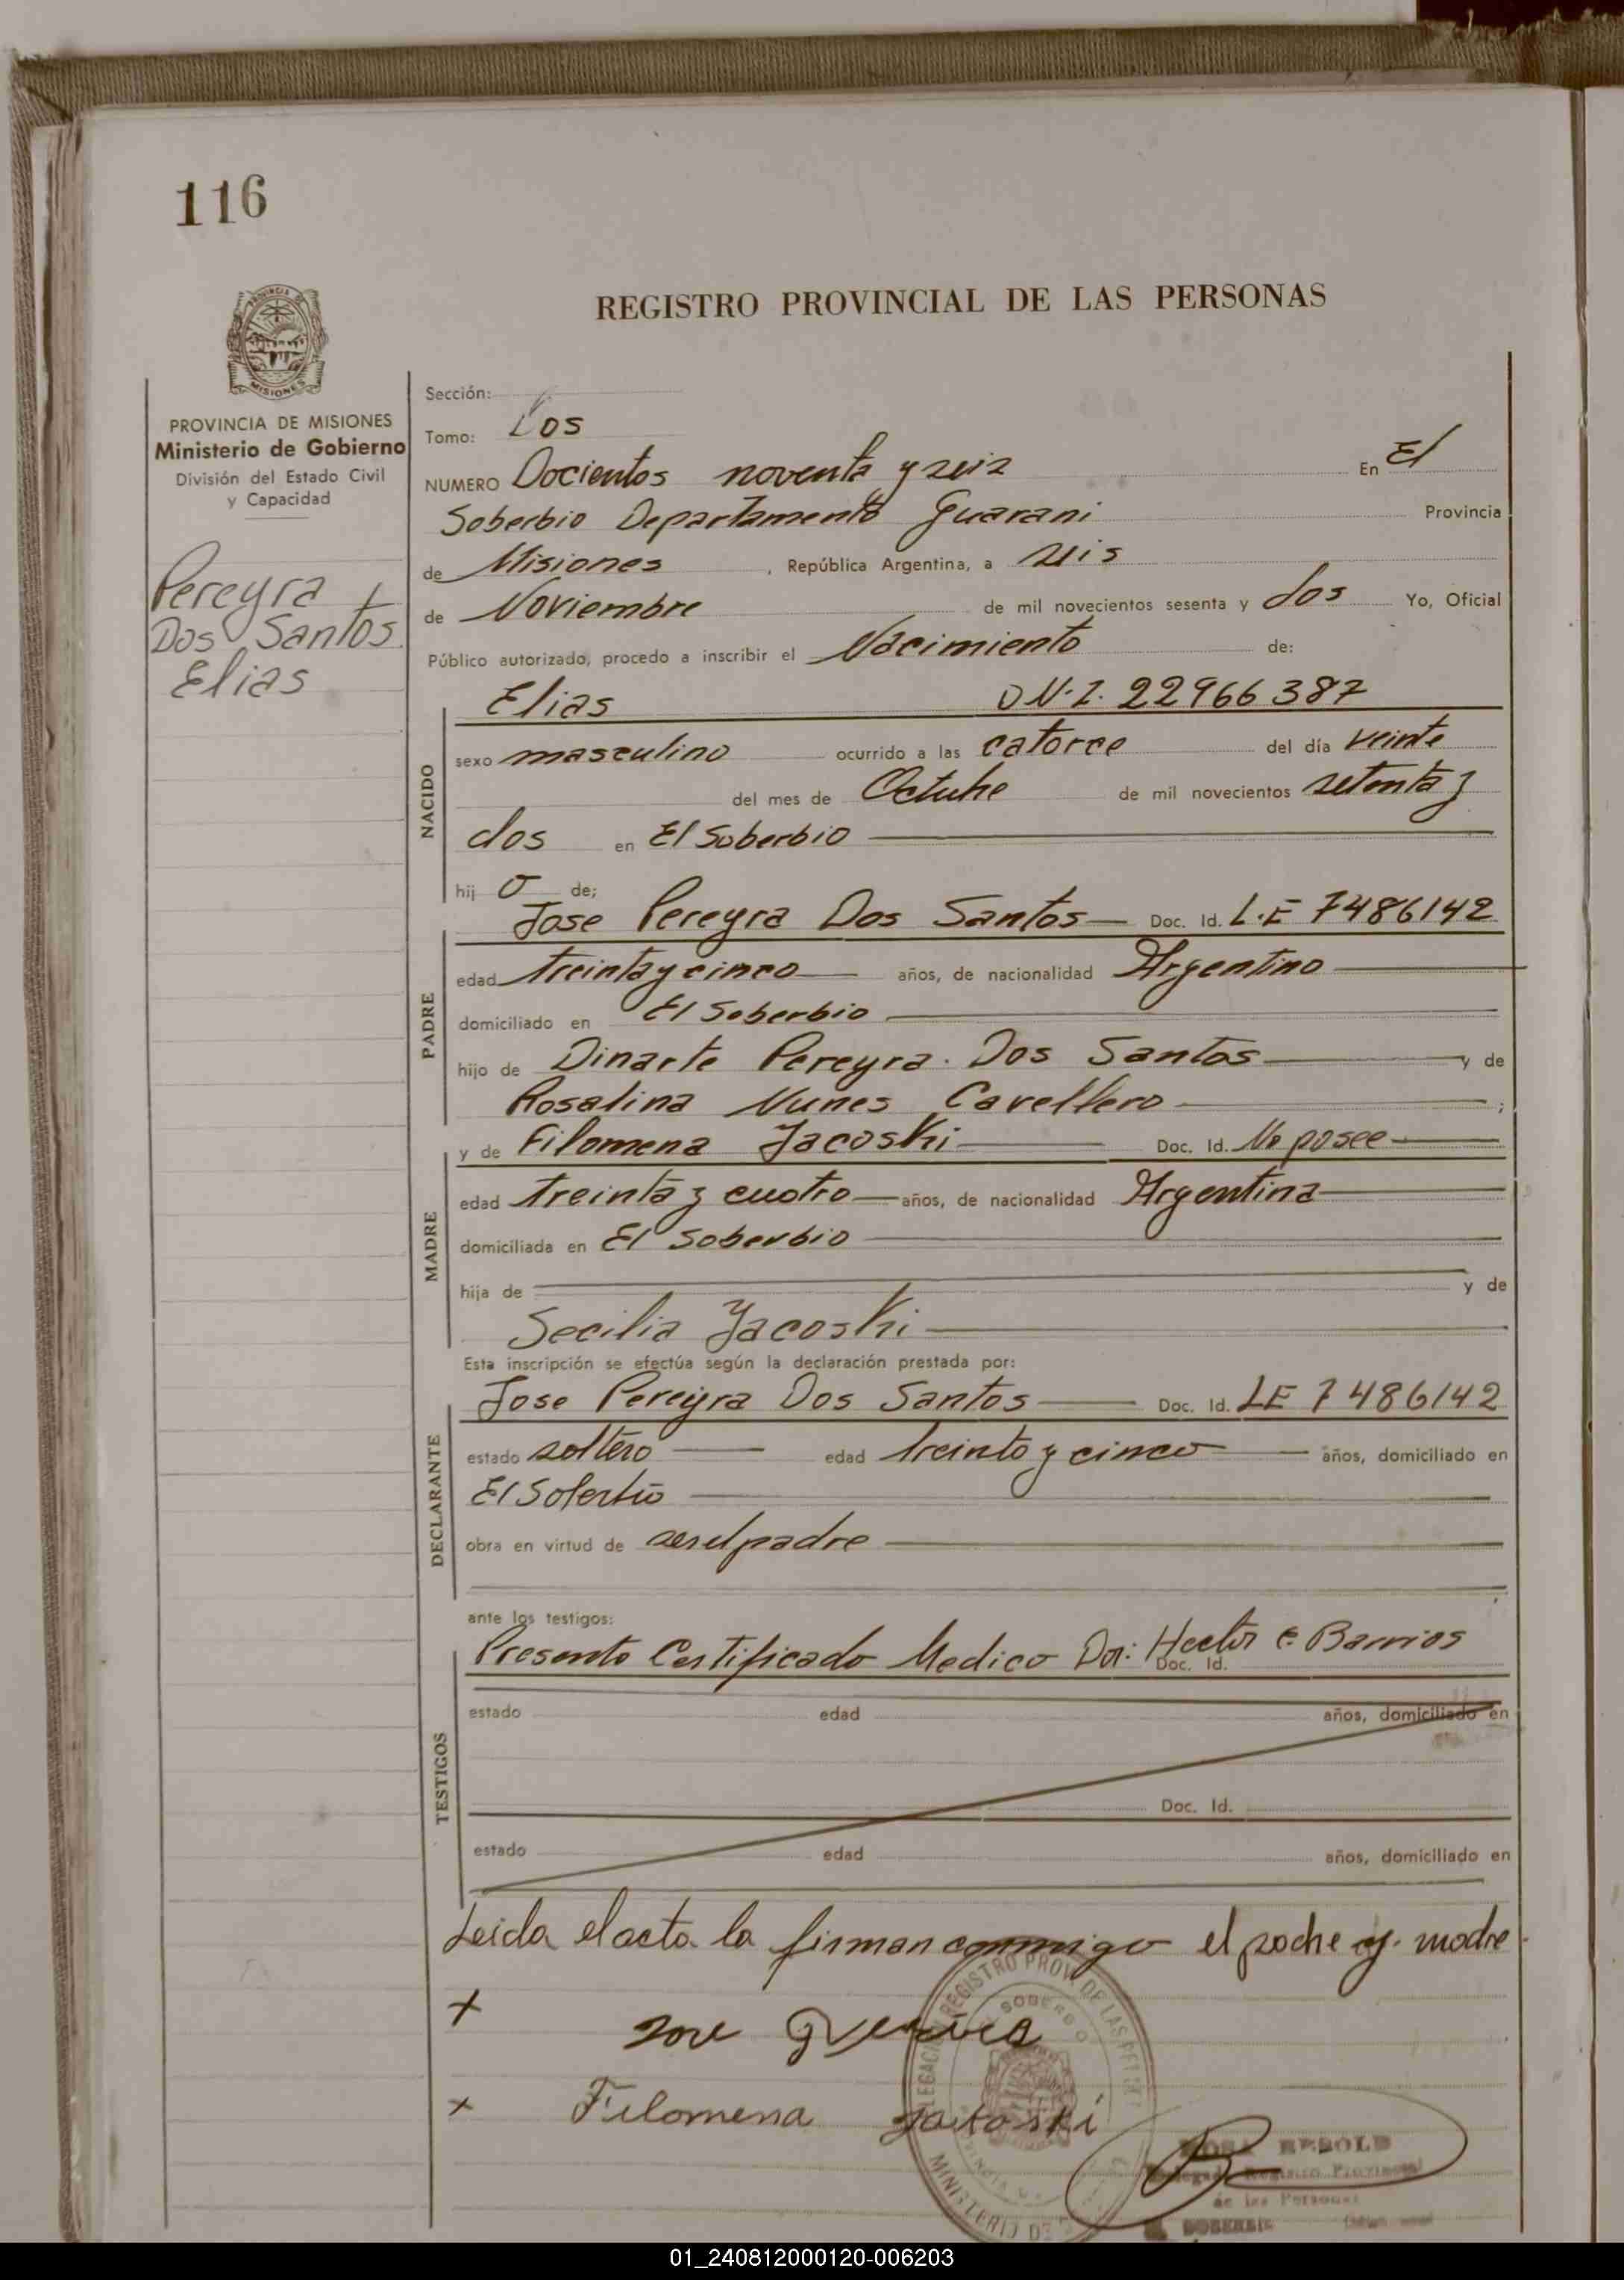 116
REGISTRO PROVINCIAL DE LAS PERSONAS
PROVINCIA DE
MISIONES
PROVINCIA DE MISIONES
Ministerio de Gobierno
División del Estado Civil
y Capacidad
Pereyra
Dos Santos
Elias
Sección:
Tomo: Dos
NUMERO Docientos noventa y seis En El
Soberbio Departamento Guarani Provincia
de Misiones , República Argentina, a seis
de Noviembre de mil novecientos sesenta y dos Yo, Oficial
Público autorizado, procedo a inscribir el Nacimiento de:
Elias D N.I. 22966387
NACIDO
sexo masculino ocurrido a las catorce del día veinte
del mes de Octubre de mil novecientos setenta y
dos en El Soberbio
hij o de;
Jose Pereyra Dos Santos Doc. Id. L.E 7486142
PADRE
edad treinta y cinco años, de nacionalidad Argentino
domiciliado en El Soberbio
hijo de Dinarte Pereyra Dos Santos y de
Rosalina Nunes Cavellero ;
y de Filomena Jacoski Doc. Id. No posee
MADRE
edad treinta y cuatro años, de nacionalidad Argentina
domiciliada en El Soberbio
hija de y de
Secilia Jacoski
Esta inscripción se efectúa según la declaración prestada por:
Jose Pereyra Dos Santos Doc. Id. LE 7486142
DECLARANTE
estado soltero edad treinta y cinco años, domiciliado en
El Soberbio
obra en virtud de ser el padre
ante los testigos:
Presento Certificado Medico Dor: Hector E. Barrios
Doc. Id.
TESTIGOS
estado edad años, domiciliado en
Doc. Id.
estado edad años, domiciliado en
Leida el acta la firman conmigo el padre y madre.
x
x Filomena Jakoski
REGISTRO PROV. DE LAS
MINISTERIO DE
ROSA
Registro Provincial
de las Personas
01_240812000120-006203